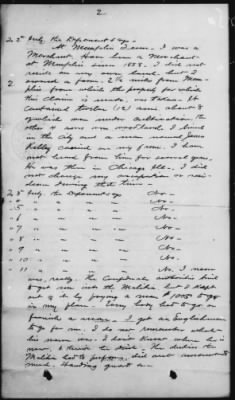 2
2 nd Int'y the Deponent says.
At Memphis Tenn. I was a
Merchant. Have been a Merchant
at Memphis since 1858. I did not
reside on my own land, but I
owned a farm 2 ½ miles from Mem-
phis from which the property for which
this claim is made, was taken. It
contained twelve (12) acres about 8
of which was under cultivation the
other 4 acres was woodland. I lived
in the City and a man named James
Kelley carried on my farm. I have
not heard from him for several years.
He was then in Chicago Ills. I did
not change my occupation or resi-
dence during that time.
2 3 d Int'y the Deponent says No.
" 4 " " " " " No.
" 5 " " " " " No.
" 6 " " " " " No.
" 7 " " " " " No.
" 8 " " " " " No.
" 9 " " " " " No.
" 10 " " " " " No.
" 11 " " " " " No, I never
was, really. The Confederate authorities tried
to get me into the Malitia but I kept
out of it by paying a man $1000 to go
in my place. Every body had to go or
furnish a man. I got an Englishman
to go for me. I do not remember what
his name was. I don't know where he is
now. The duties the
Malitia had to perform, did not amount to
much. Standing guard &c.